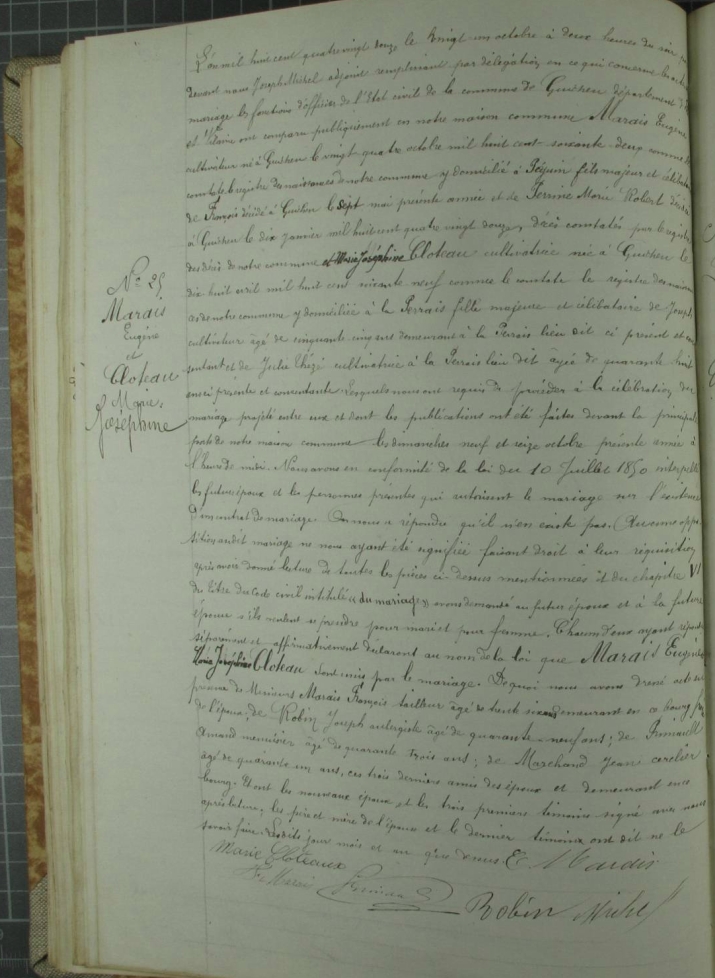 L'an mil huit cent quatre vingt douze, le vingt un octobre à deux heures du soir
devant nous Joseph Michel adjoint remplissant par délégation en ce qui concerne les actes
mariage les fonctions d'officier de l'Etat civil de la commune de Guichen département d'Ille
et Vilaine ont comparu publiquement en notre maison commune Marais Eugène
cultivateur né à Guichen le vingt quatre octobre mil huit cent soixante deux comme le
constate le registre des naissances de notre commune y domicilié à fils majeur et célibataire
de François décédé à Guichen le sept mai présente année et de Perrine Marie Robert décédée
à Guichen le dix janvier mil huit cent quatre vingt douze, décès constatés par le registre
des décès de notre commune et Marie Joséphine Cloteau cultivatrice née à Guichen le
dix huit avril mil huit cent soixante neuf comme le constate le registre des naissances
de notre commune y domiciliée à la Perrais fille majeure et célibataire de Joseph
cultivateur âgé de cinquante cinq ans demeurant à la Perrais lieu dit ci présent et con
sentant et de Julie cultivatrice à la Perrais lieu dit âgée de quarante huit
ans ci présente et consentante. Lesquels nous ont requis de procéder à la célébration du
mariage projeté entre eux et dont les publications ont été faites devant la principale
porte de notre maison commune les dimanches neuf et seize octobre présente année à
l'heure de midi. Nous avons en conformité de la loi du 10 Juillet 1850 interpellé
les futurs époux et les personnes présentes qui autorisent le mariage sur l'existence
d'un contrat de mariage. On nous a répondu qu'il n'en existe pas. Aucune oppo
sition audit mariage ne nous ayant été signifiée faisant droit à leur réquisition
après avoir donné lecture de toutes les pièces ci-dessus mentionnées et du chapitre VI
du titre du Code civil intitulé « du mariage » avons demandé au futur époux et à la future
épouse s'ils veulent se prendre pour mari et pour femme. Chacun d'eux ayant répondu
séparément et affirmativement déclarons au nom de la loi que Marais Eugène
Marie Joséphine Cloteau sont unis par le mariage. De quoi nous avons dressé acte en
présence de Messieurs Marais François tailleur âgé de trente ans demeurant en ce bourg
de l'époux, de Robin Joseph aubergiste âgé de quarante neuf ans; de
Amand menuisier âgé de quarante trois ans; de Marchand Jean
âgé de quarante un ans, ces trois derniers amis des époux et demeurant en ce
bourg. Et ont les nouveaux époux, et les trois premiers témoins signé avec nous
après lecture, les père et mère de l'épouse et le dernier témoin ont dit ne le
savoir faire. Lesdits jour mois et an que dessus E Marais
Marie Cloteaux
F. Marais
Robin Michel
N° 25
Marais
Eugène
et
Cloteau
Marie
Joséphine